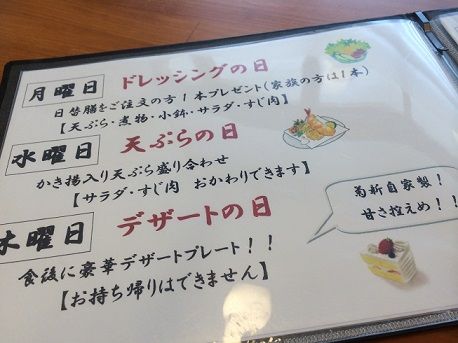 月曜日 ドレッシングの日
日替膳をご注文の方1本プレゼント(家族の方は1本)
【天ぷら・煮物・小鉢・サラダ・すじ肉】
水曜日 天ぷらの日
かき揚入り天ぷら盛り合わせ
【サラダ・すじ肉 おかわりできます】
木曜日 デザートの日
食後に豪華デザートプレート!!
【お持ち帰りはできません】
菊新自家製!
甘さ控えめ!!